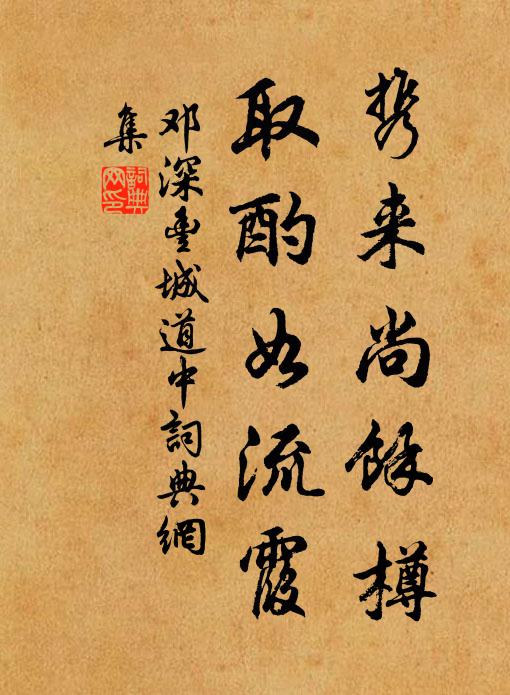 携来尚餘樽
取酌如流霞
邓深豊城道中詞典網
集
詞典
网印